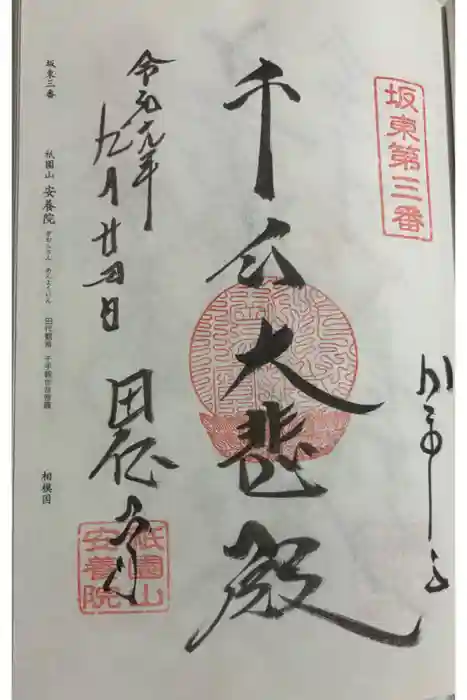 坂東第三番
千手大悲殿
令和元年
九月廿四日
田代
祇園山
安養院
坂東三番 祇園山 安養院 ぎおんさん あんよういん 田代観音 千手観世音菩薩 相模国